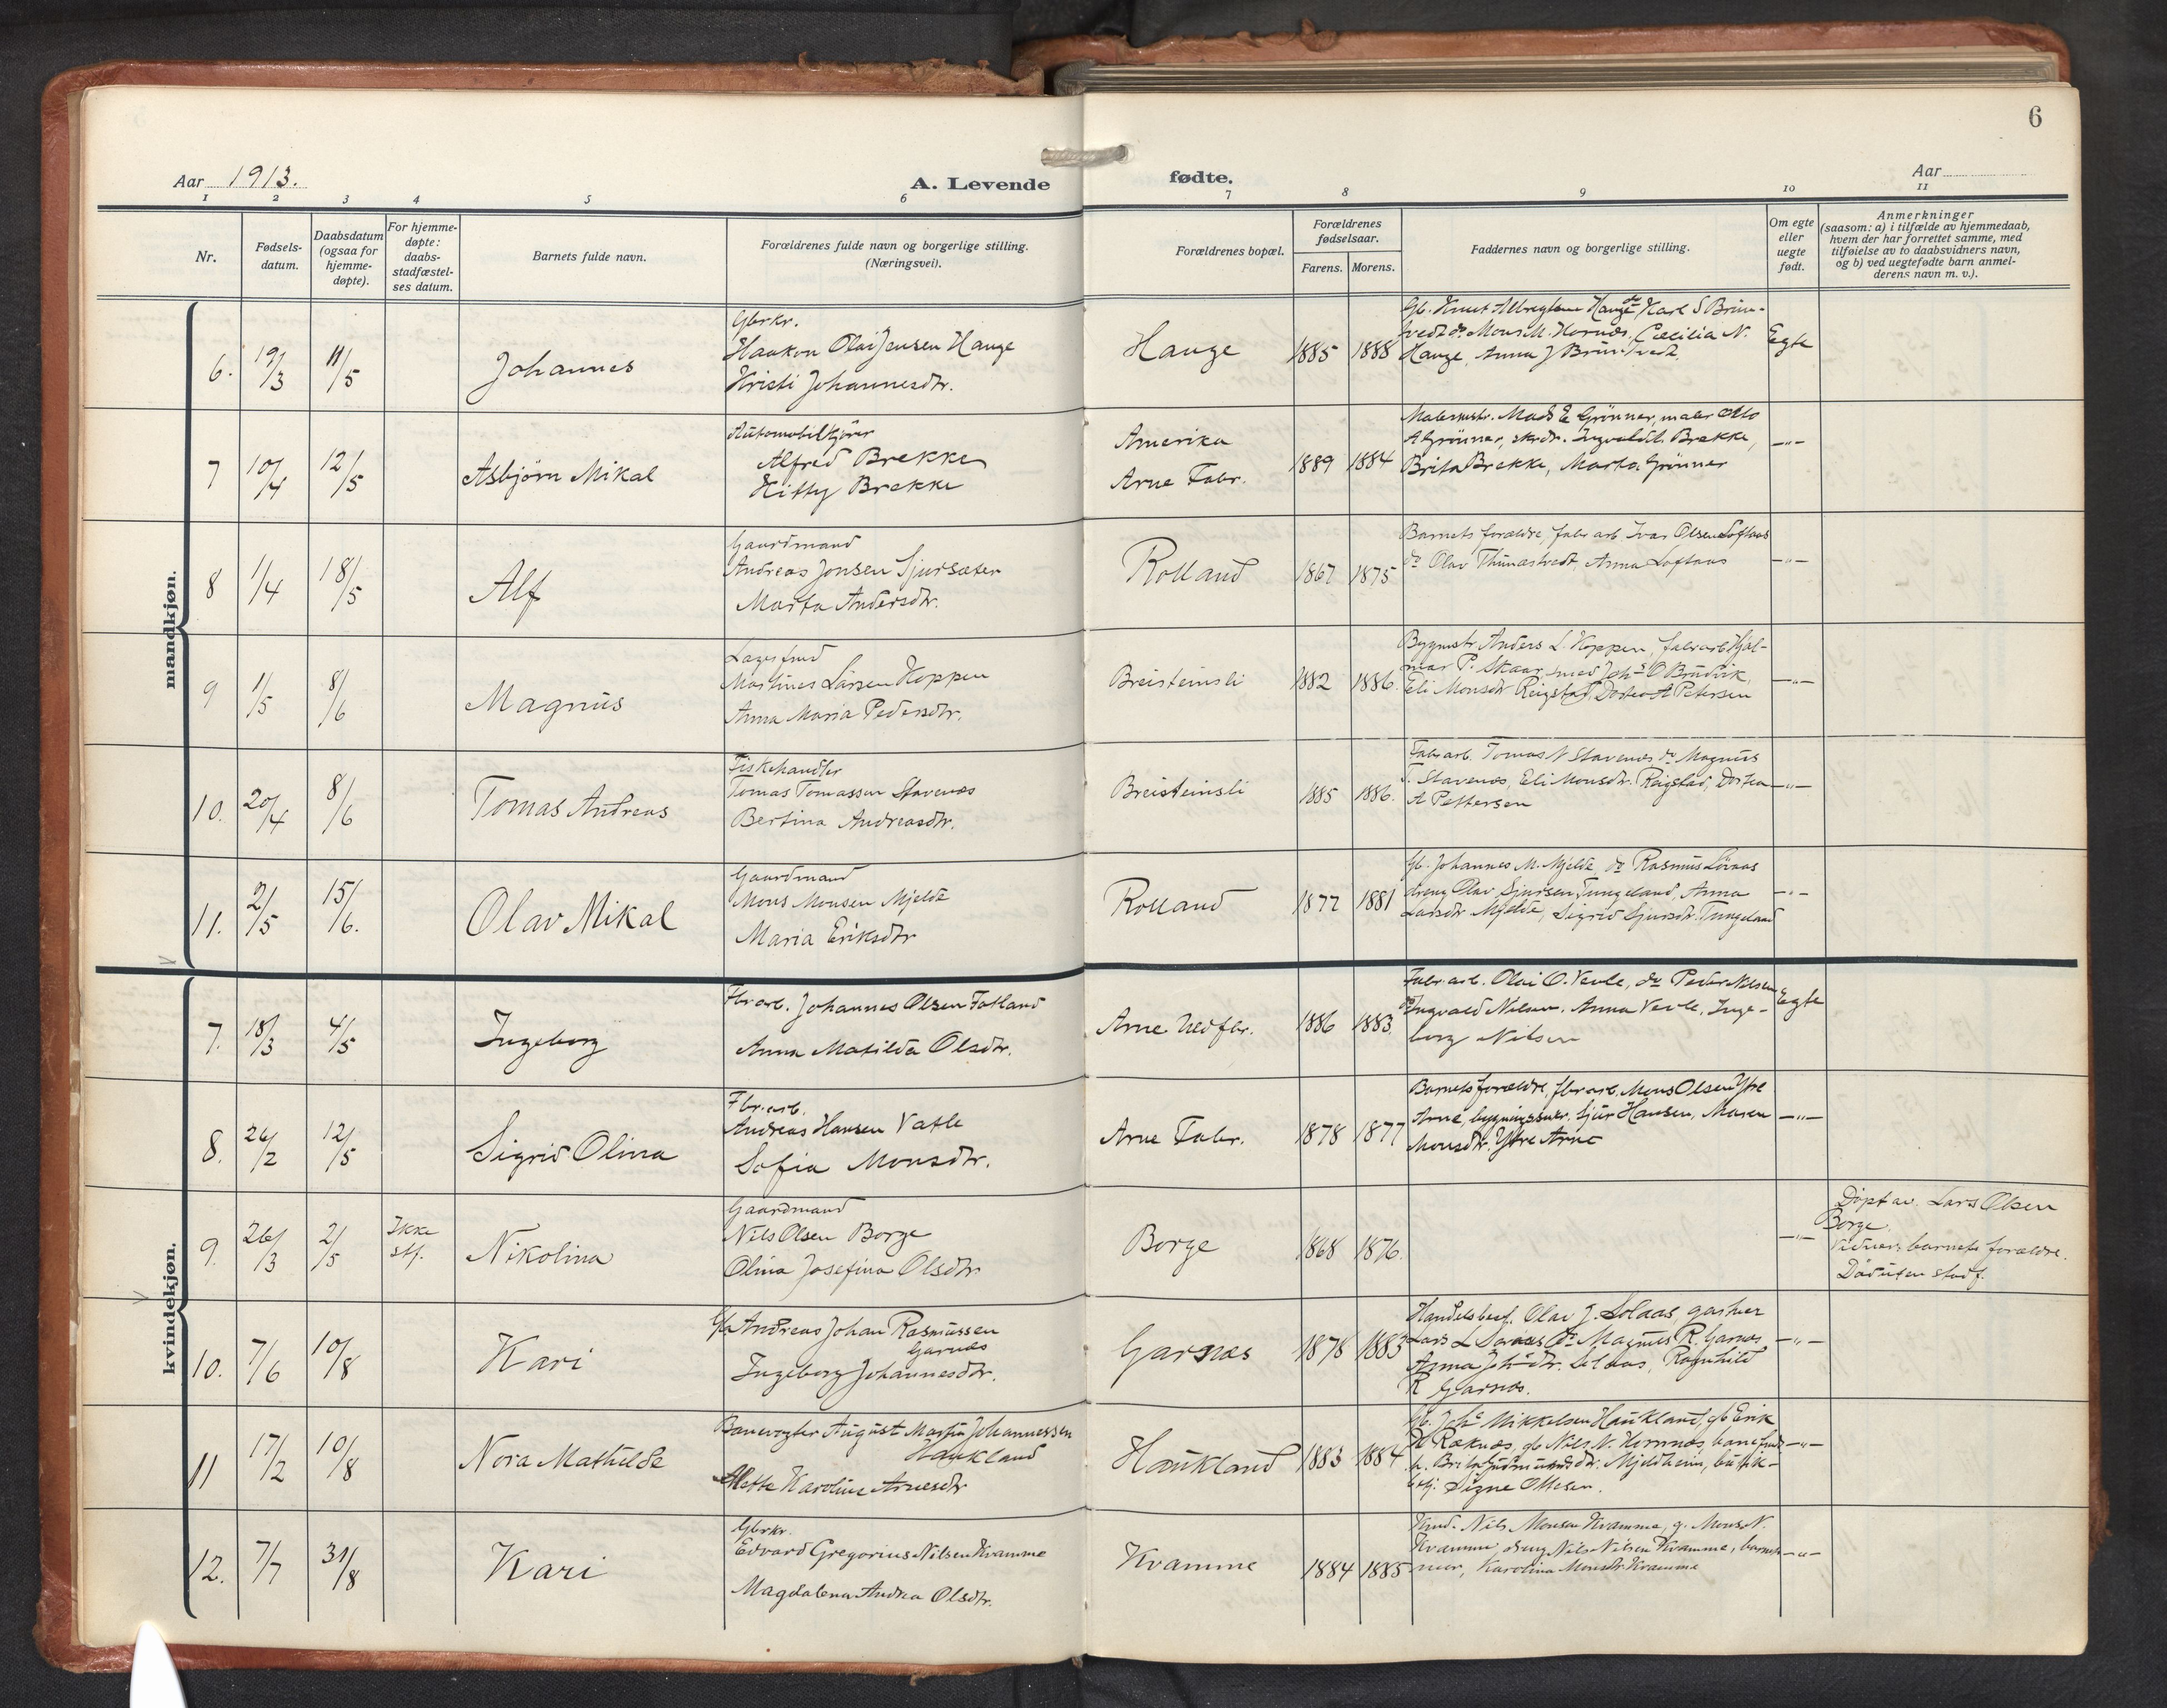 6
Aar 1913.
A. Levende
fødte.
Aar
1 2 3 4 5 6 7 8 9 10 11
Nr.
Fødsels-
datum.
Daabsdatum
(ogsaa for
hjemme-
døpte).
For hjemme-
døpte:
daabs-
stadfæstel-
ses datum.
Barnets fulde navn.
Forældrenes fulde navn og borgerlige stilling.
(Næringsvei).
Forældrenes bopæl.
Forældrenes
fødselsaar.
Farens. Morens.
Faddernes navn og borgerlige stilling.
Om egte
eller
uegte
født.
Anmerkninger
(saasom: a) i tilfælde av hjemmedaab,
hvem der har forrettet samme, med
tilføielse av to daabsvidners navn,
og b) ved uegtefødte barn anmel-
derens navn m. v.).
mandkjøn.
6. 19/3 11/5 Johannes
Gbrkr.
Haakon Olai Jensen Hauge
Kristi Johannesdtr.
Hauge 1885 1888
Karl S Brun-
tvedt do. Mons M. Hornæs, Cæcilia N.
Hauge, Anna J Bruntvedt.
Egte
7 10/4 12/5 Asbjørn Mikal
Automobilkjører
Alfred Brekke
Kitty Brekke
Amerika
Arne Fabr.
1889 1884
Malermstr. Mads E Grønner, maler Otto
A Grønner, skrdr. Ingvald Brekke,
Brita Brekke, Marta Grønner
—"—
8 1/4 18/5 Alf
Gaardmand
Andreas Jonsen Sjursæter
Marta Andersdtr.
Rolland 1867 1875
Barnets forældre, fabr arb Ivar Olsen Loftaas
do Olav Thunestvedt, Anna Loftaas
—"—
9 1/5 8/6 Magnus
Martines Larsen Hoppen
Anna Maria Pedersdtr.
Breisteinsli 1882 1886.
Bygmstr Anders L. Hoppen, fabrarb Hjal-
mar P. Skaar, smed Johs O Brudvik,
Eli Monsdtr Reigstad, Dortea A Petersen
—"—
10. 20/4 8/6 Tomas Andreas
Fiskehandler
Tomas Tomassen Stavenæs
Bertina Andreasdtr.
Breisteinsli 1885 1886.
Fabrarb. Tomas N Stavenæs do Magnus
T. Stavenæs, Eli Monsdtr. Reigstad, Dortea
A Pettersen
—"—
11. 2/5 15/6. Olav Mikal
Gaardmand
Mons Monsen Mjelde
Maria Eriksdtr
Rolland 1877 1881
Gb. Johannes M. Mjelde, do Rasmus
dreng Olav Sjursen Tungeland, Anna
Larsdtr Mjelde, Sigrid Sjursdtr. Tungeland
—"—
kvindekjøn.
7. 18/3 4/5 Ingeborg
Fbrarb. Johannes Olsen Fotland
Anna Matilda Olsdtr.
Arne Uldfbr. 1886 1883.
Fabr. arb. Olai O. Vevle, do Peder Nilsen
do Ingvald Nilsen, Anna Vevle, Inge-
borg Nilsen
Egte
8. 26/2 12/5 Sigrid Olina
Fbr.arb.
Andreas Hansen Vatle
Sofia Monsdtr.
Arne Fabr. 1878 1877
Barnets forældre, fbrarb. Mons Olsen Ytre
Arne, bygningssner. Sjur Hansen, Maren
Monsdtr. Ytre Arne
—"—
9. 26/3 2/5 Ikke
stf.
Nikolina
Gaardmand
Nils Olsen Borge
Olina Josefina Olsdtr
Borge 1868 1876.
—"—
Døpt av Lars Olsen
Borge.
Vidner: barnets forældre.
Død uten stadf.
10. 7/6 10/8 Kari
Gb Andreas Johan Rasmussen
Garnæs
Ingeborg Johannesdtr.
Garnæs 1878 1883
Handelsbest. Olav J. Solaas, gartner
Lars L do Magnus R. Garnæs,
Anna Johsdtr. Solaas, Ragnhild
R Garnæs.
—"—
11 17/2 10/8 Nora Mathilde
Banevogter August Martin Johannessen
Haukland
Mette Karoline Arnesdtr
Haukland 1883 1884
Gb. Johs Mikkelsen Haukland, gb Erik
Raknæs, gb Nils N. Hornnæs,
Mjeldheim, butik-
betj. Signe Ottesen.
—"—
12. 7/7 31/8 Kari
Gbrkr.
Edvard Gregorius Nilsen Kvamme
Magdalena Andrea Olsdtr.
Kvamme 1884 1885
Nils Monsen Kvamme, g. Mons N.
Kvamme, dreng Nils Nilsen Kvamme, barnets
mor, Karolina Monsdtr Kvamme
—"—